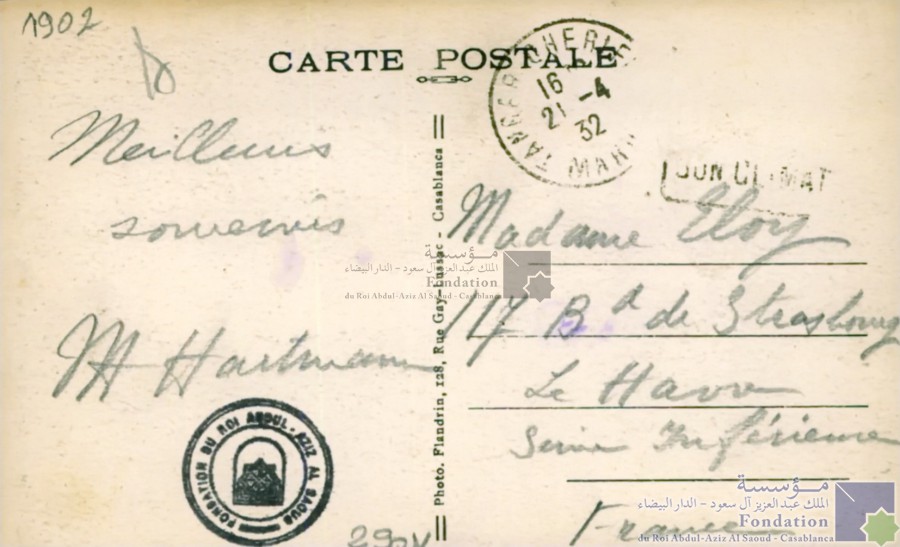 1902
CARTE POSTALE
TANGER CHERIFIEN
16
21 -4
32
BON CLIMAT
Meilleurs
souvenirs
M Hartmann
Madame Eloy
117 Bd de Strasbourg
Le Havre
Seine Inférieure
France
Photo. Flandrin, 128, Rue Gay-Lussac - Casablanca
مؤسسة
الملك عبد العزيز آل سعود – الدار البيضاء
Fondation
du Roi Abdul-Aziz Al Saoud - Casablanca
FONDATION DU ROI ABDUL-AZIZ AL SAOUD
مؤسسة
الملك عبد العزيز آل سعود – الدار البيضاء
Fondation
du Roi Abdul-Aziz Al Saoud - Casablanca